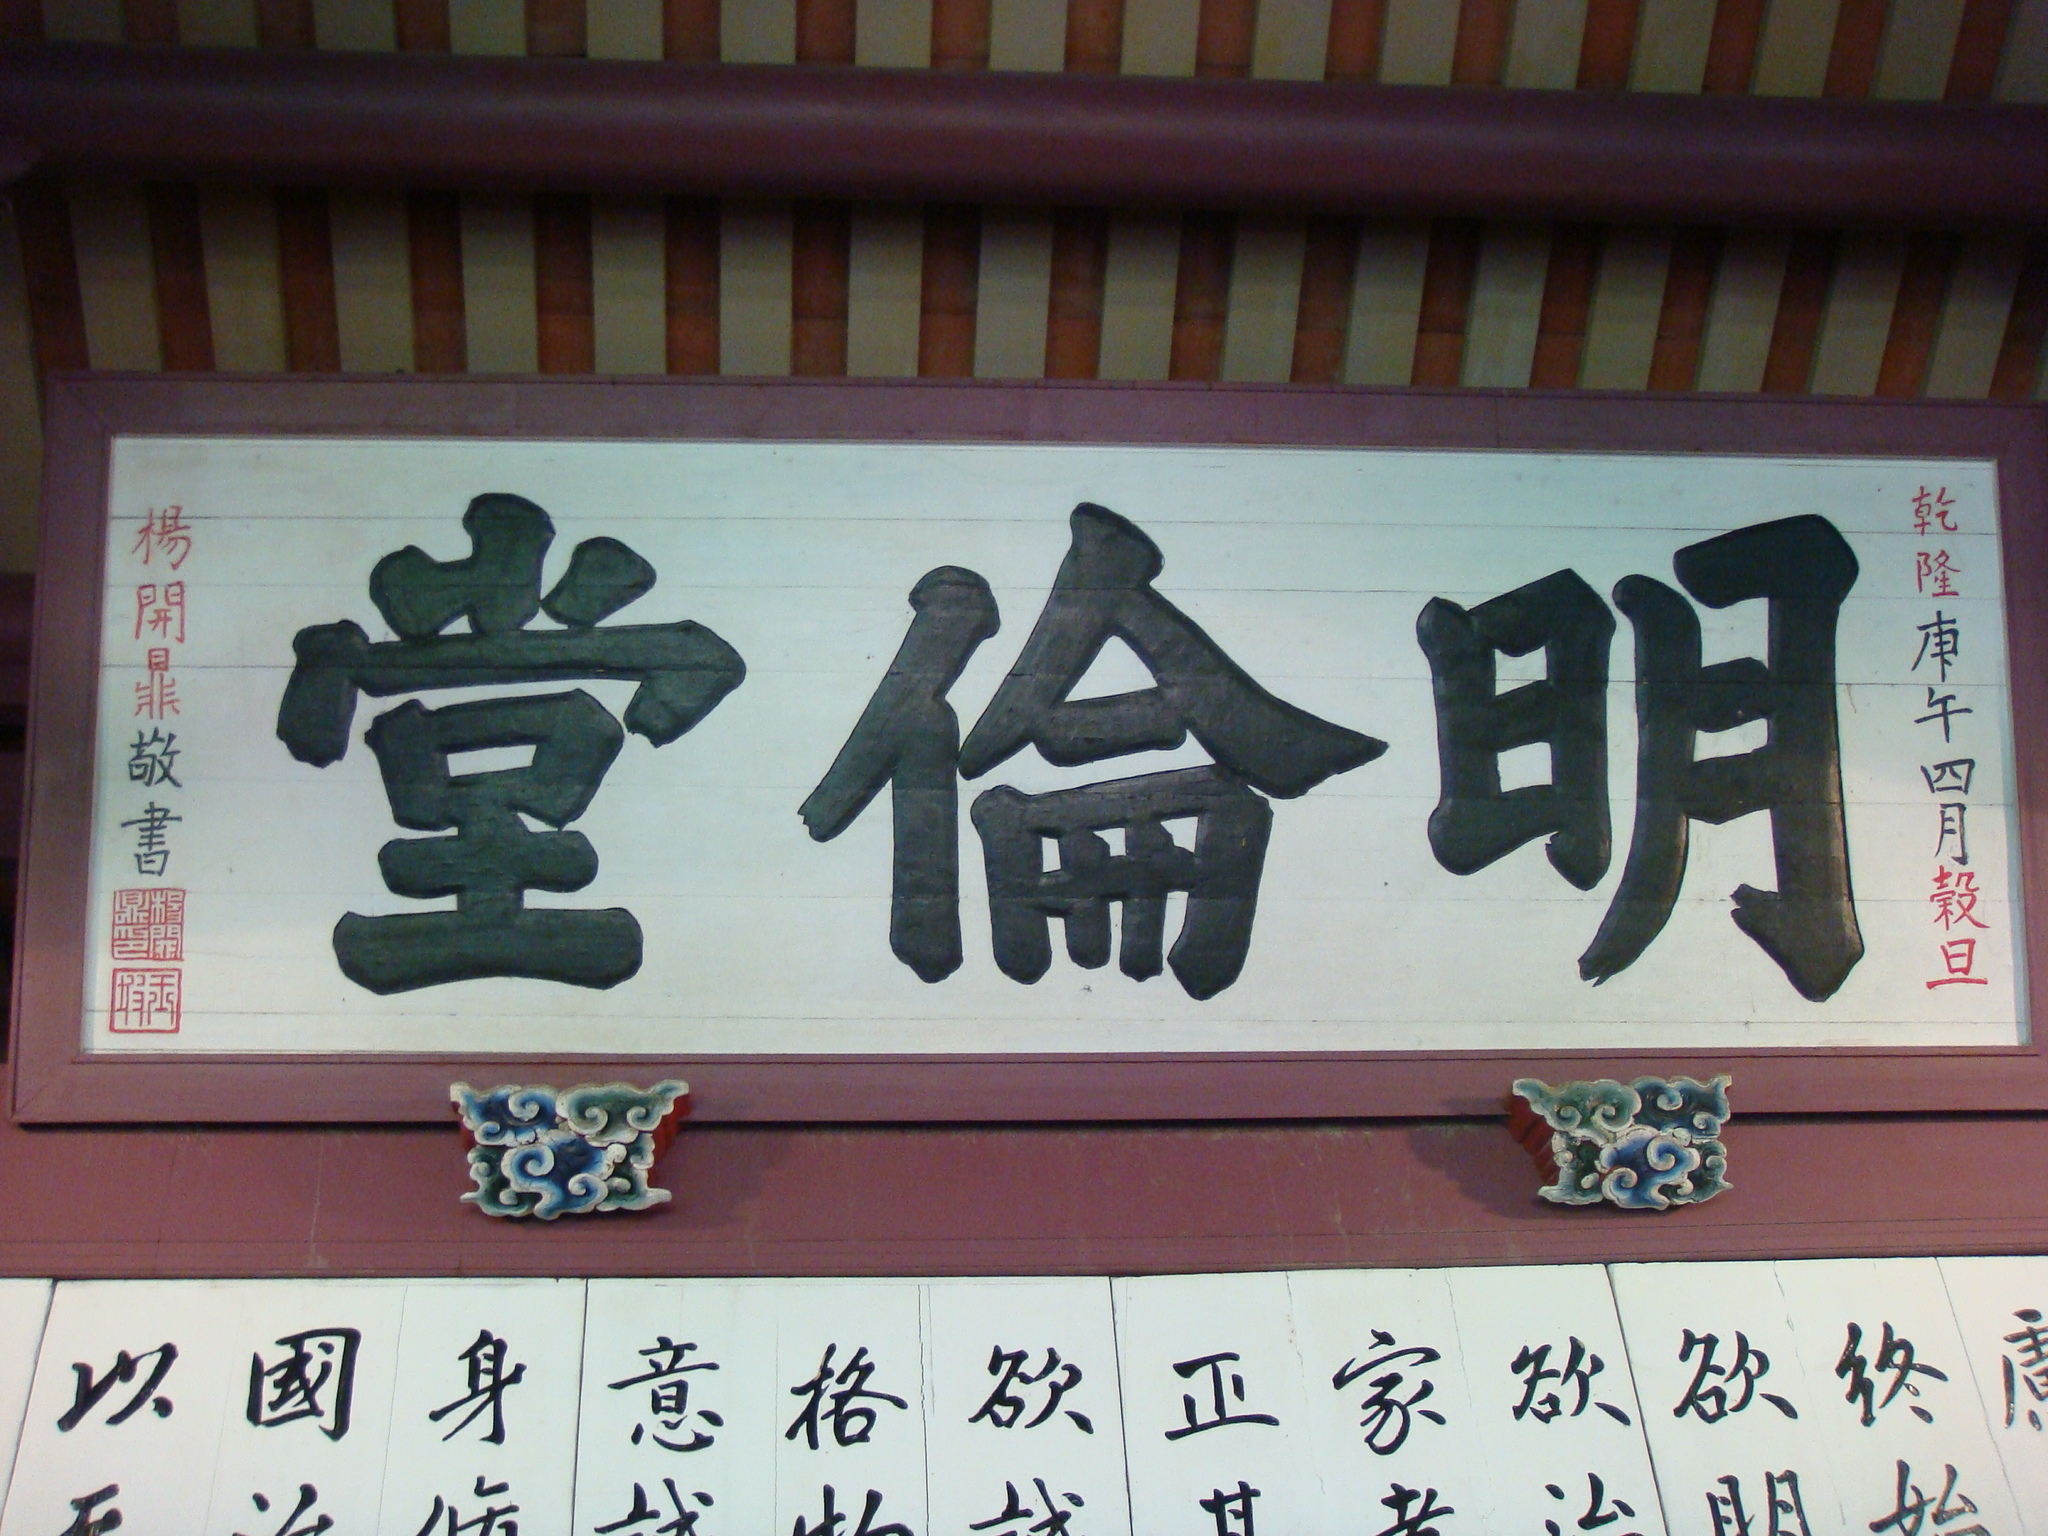 明倫堂
乾隆庚午四月穀旦
楊開鼎敬書
楊開鼎印
慮
終始
欲明
欲治
家者
正其
欲誠
格物
意誠
身修
國治
以至